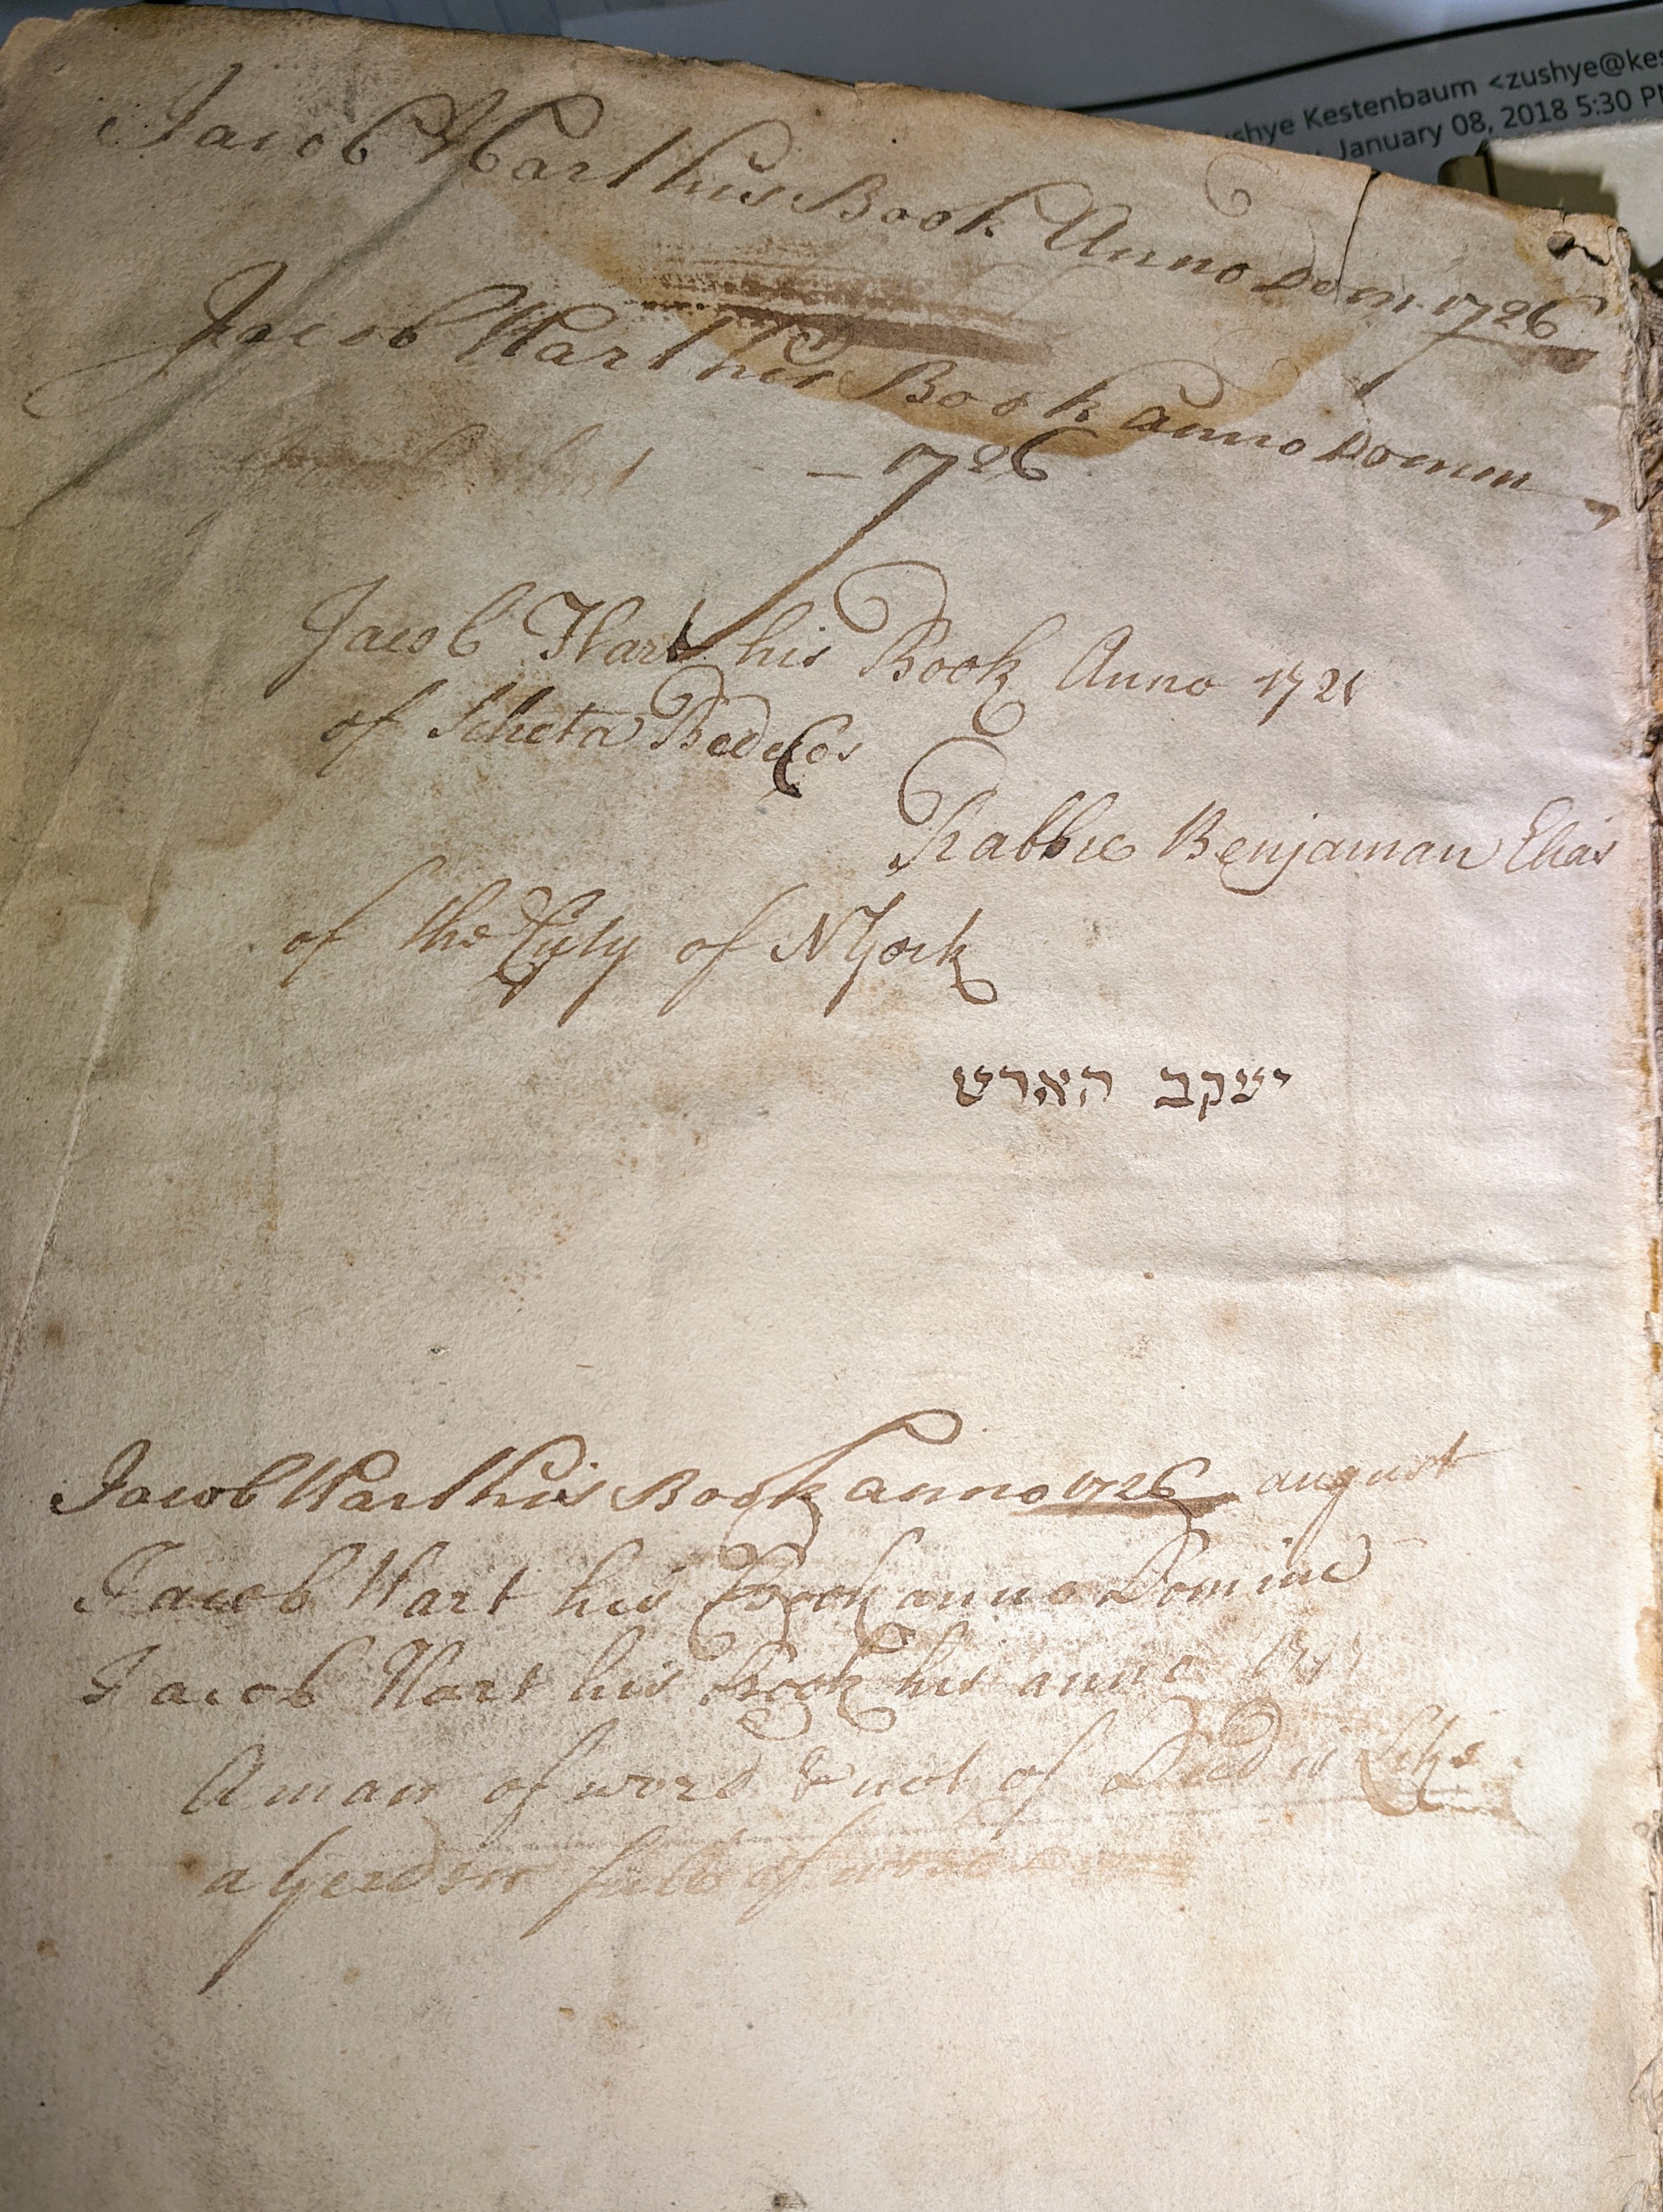 Zushye Kestenbaum <zushye@kes
January 08, 2018 5:30 PM
Jacob Hart his Book Anno Dom 1726
Jacob Hart his Book anno Domin
1726
Jacob Hart his Book Anno 172
of
Rabbie Benjaman Elias
of the Cyty of N York
יעקב הארט
Jacob Hart his Book anno 1726 august
Jacob Hart his Book anno Domine
Jacob Hart his Book his anno
A man of word & not of Deed is Like
a full of